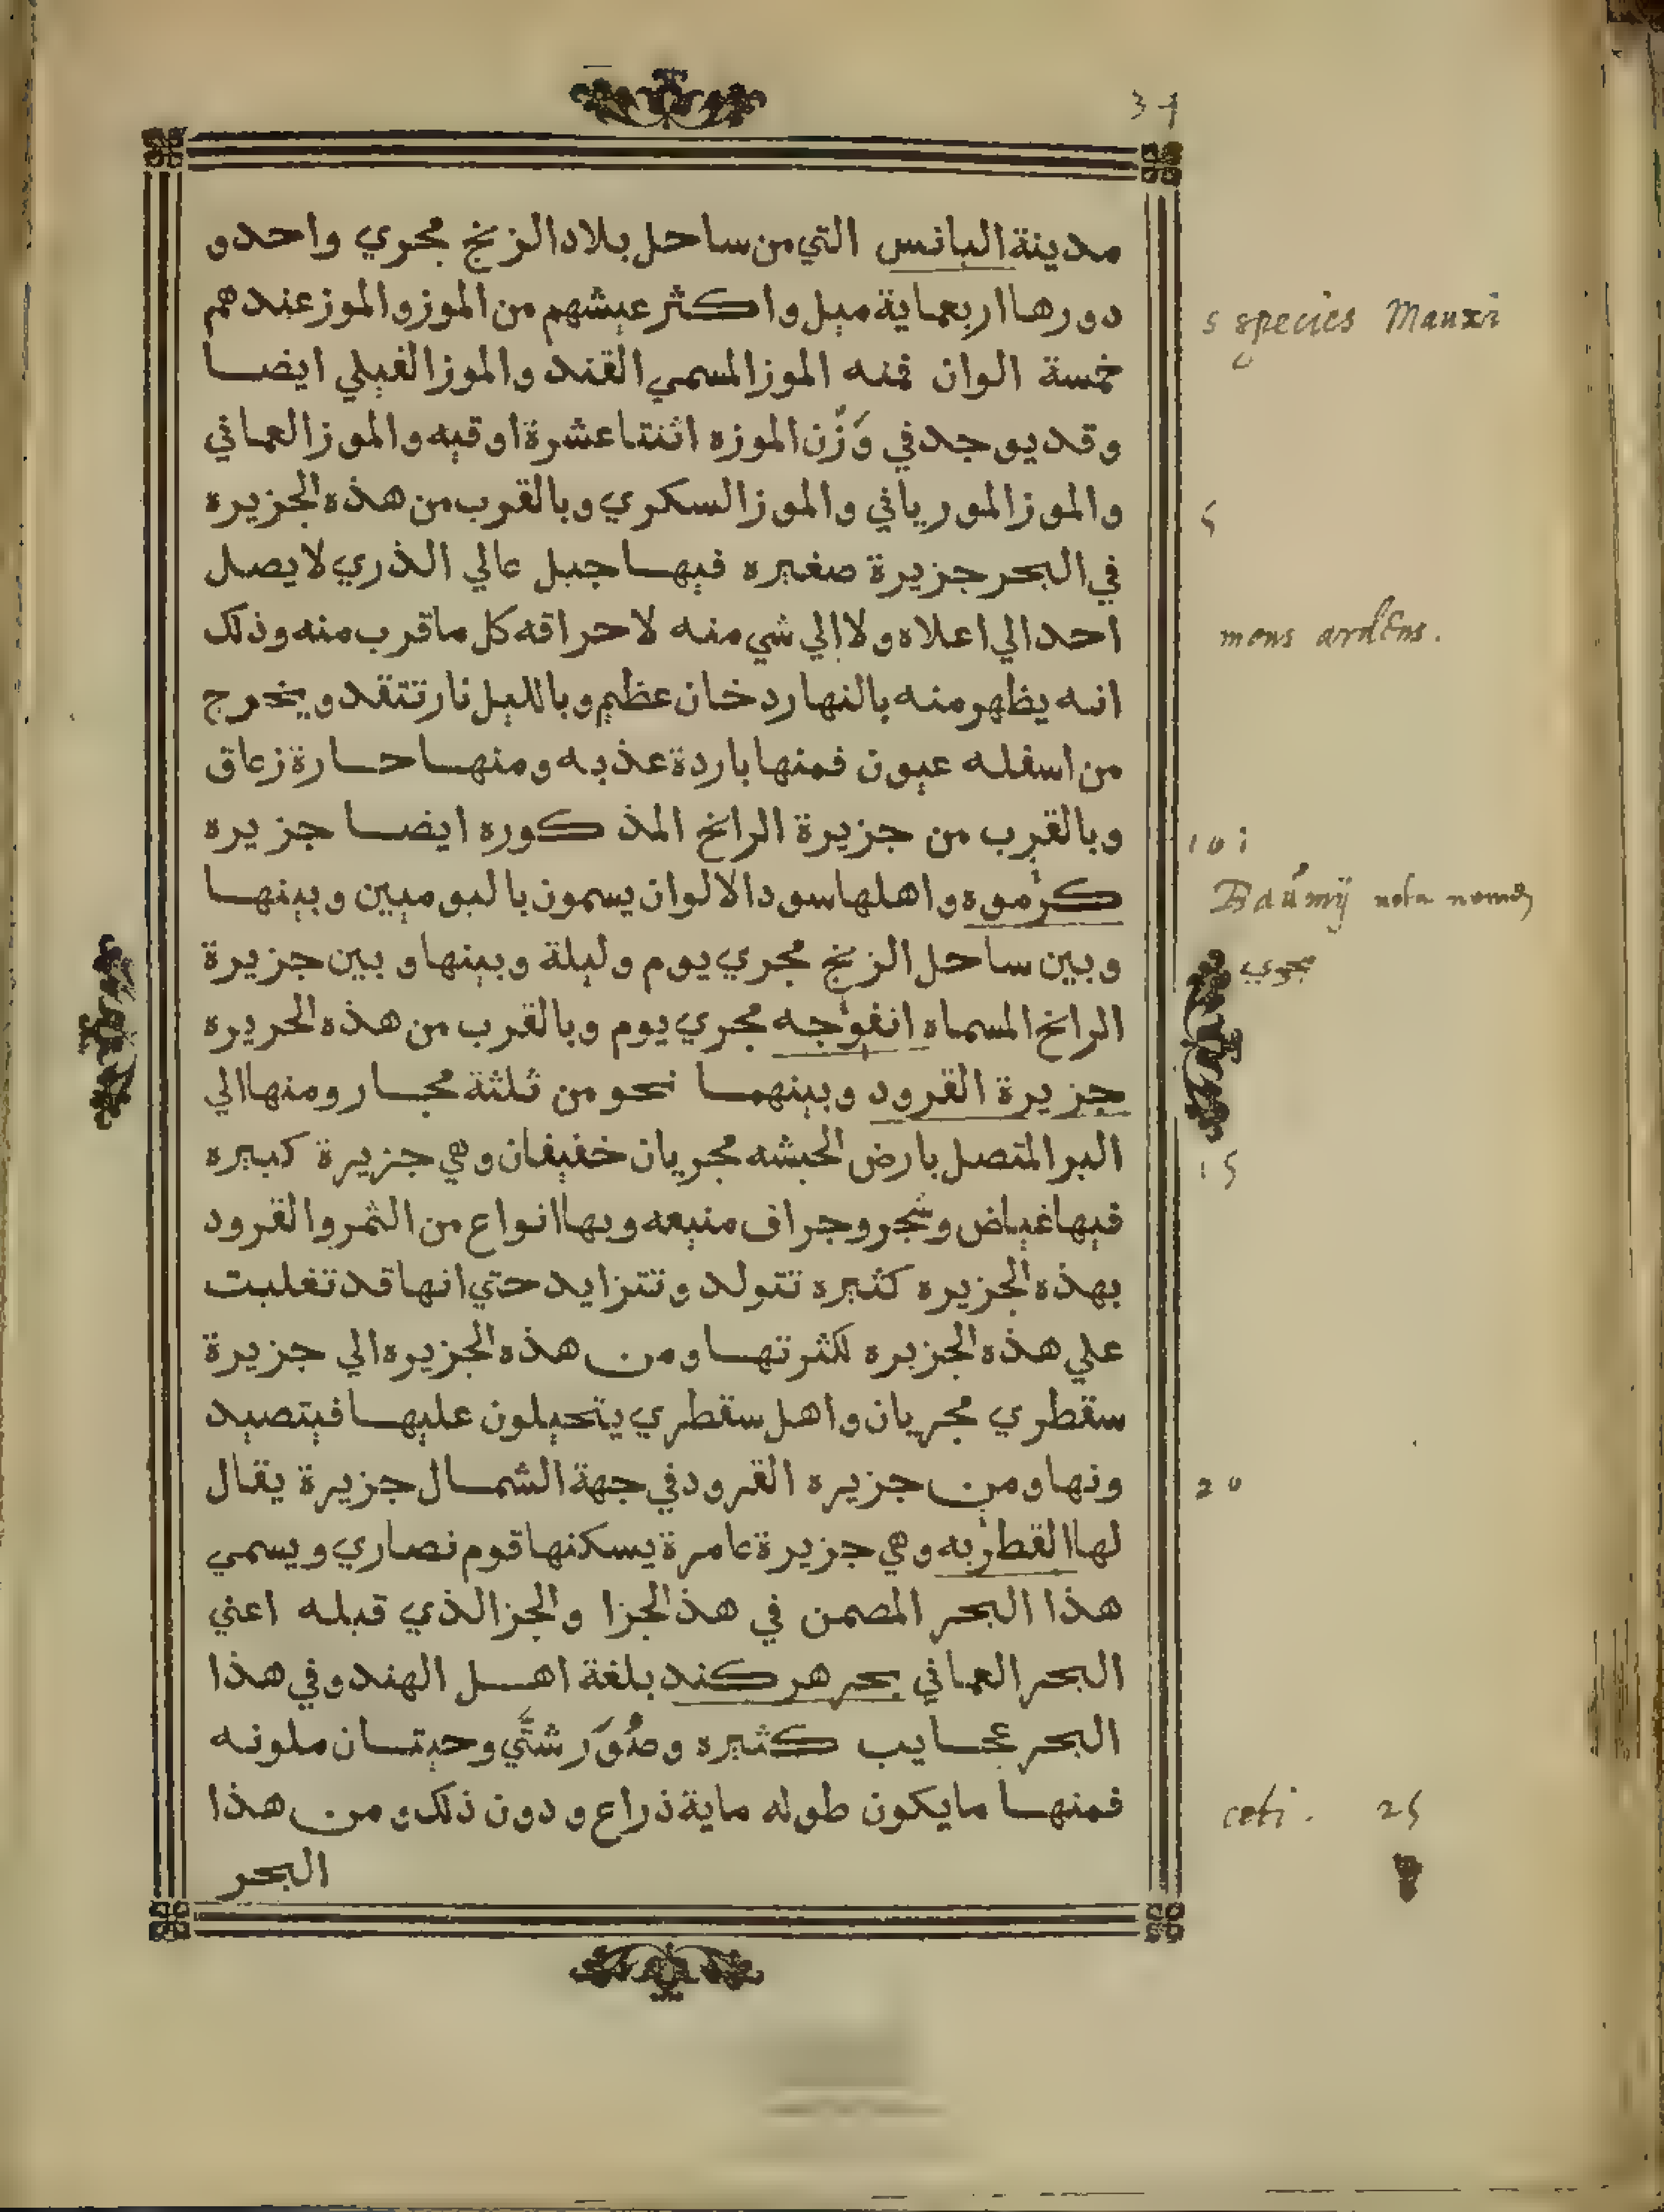 34
مدينة البانس التي من ساحل بلاد الزنج مجري واحد و
دورها اربعماية ميل واكثر عيشهم من الموز والموز عندهم
5 species Mauzi
خمسة الوان فمنه الموز المسمي القند والموز الفيلي ايضا
وقد يوجد في وَزْن الموزه اثنتا عشرة اوقيه والموز العماني
والموز المورياني والموز السكري وبالقرب من هذه الجزيره
5
في البحر جزيرة صغيره فيها جبل عالي الذري لا يصل
احد الي اعلاه ولا الي شي منه لاحراقه كل ما قرب منه وذلك
mons ardens.
انه يظهر منه بالنهار دخان عظيم وبالليل نار تتقد ويخرج
من اسفله عيون فمنها باردة عذبه ومنها حارة زعاق
وبالقرب من جزيرة الرانخ المذكوره ايضا جزيره
10
كرموه واهلها سود الالوان يسمون بالبوميين وبينها
Baúmij nota nomen
وبين ساحل الزنج مجري يوم وليلة وبينها وبين جزيرة
مجري
الرانخ المسماه انفوجه مجري يوم وبالقرب من هذه الحريره
جزيرة القرود وبينهما نحو من ثلثة مجار ومنها الي
البر المتصل بارض الحبشه مجريان خفيفان وهي جزيرة كبيره
15
فيها غياض وشجر وجراف منيعه وبها انواع من الثمر والقرود
بهذه الجزيره كثيره تتولد وتتزايد حتي انها قد تغلبت
علي هذه الجزيره لكثرتها ومن هذه الجزيره الي جزيرة
سقطري مجريان واهل سقطري يتحيلون عليها فيتصيد
ونها ومن جزيره القرود في جهة الشمال جزيرة يقال
20
لها القطربه وهي جزيرة عامرة يسكنها قوم نصاري ويسمي
هذا البحر المصمن في هذ الجزا والجز الذي قبله اعني
البحر العماني بحر هركند بلغة اهل الهند وفي هذا
البحر عجايب كثيره وصُوَر شتَّي وحيتان ملونه
فمنها ما يكون طوله ماية ذراع ودون ذلك ومن هذا
ceti. 25
البحر